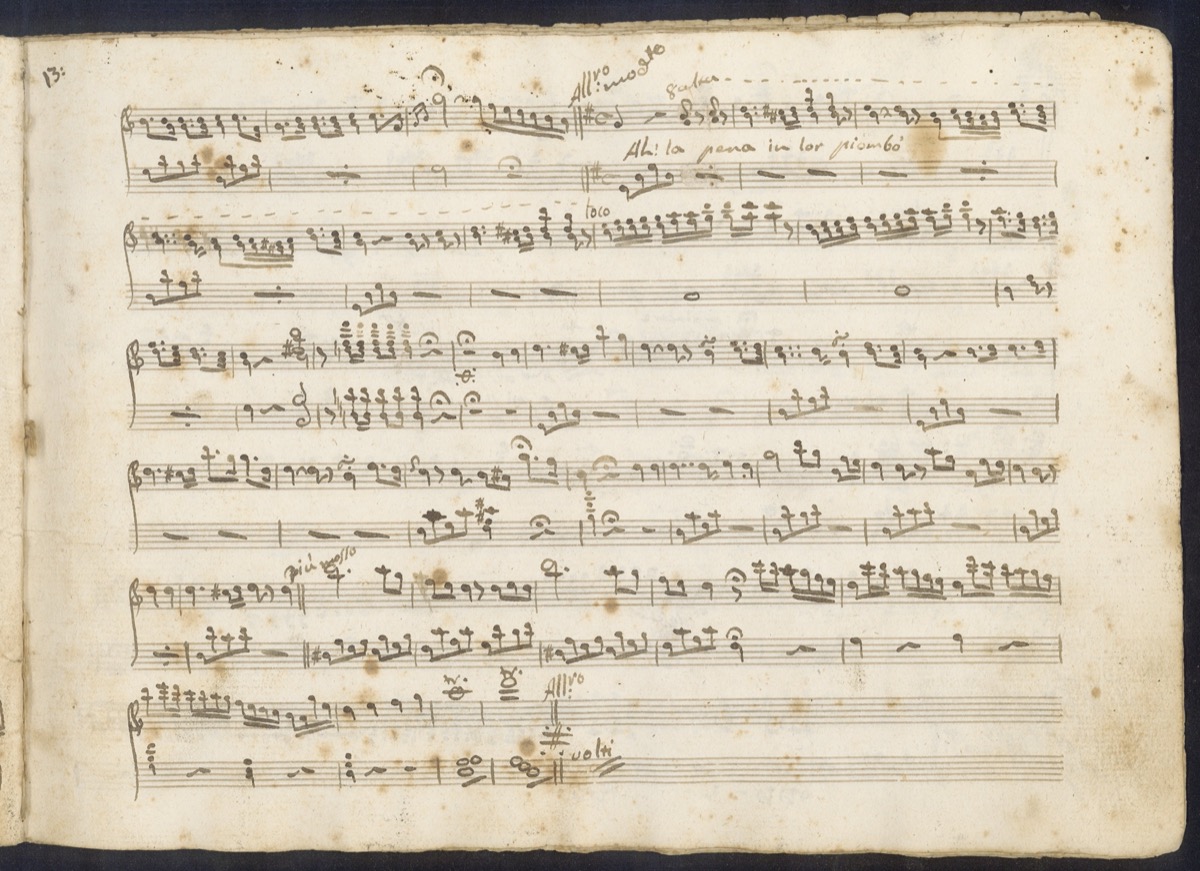 13:
All:ro modto
8 alta
Ah! la pena in lor piombò
loco
più mosso
All:ro
volti